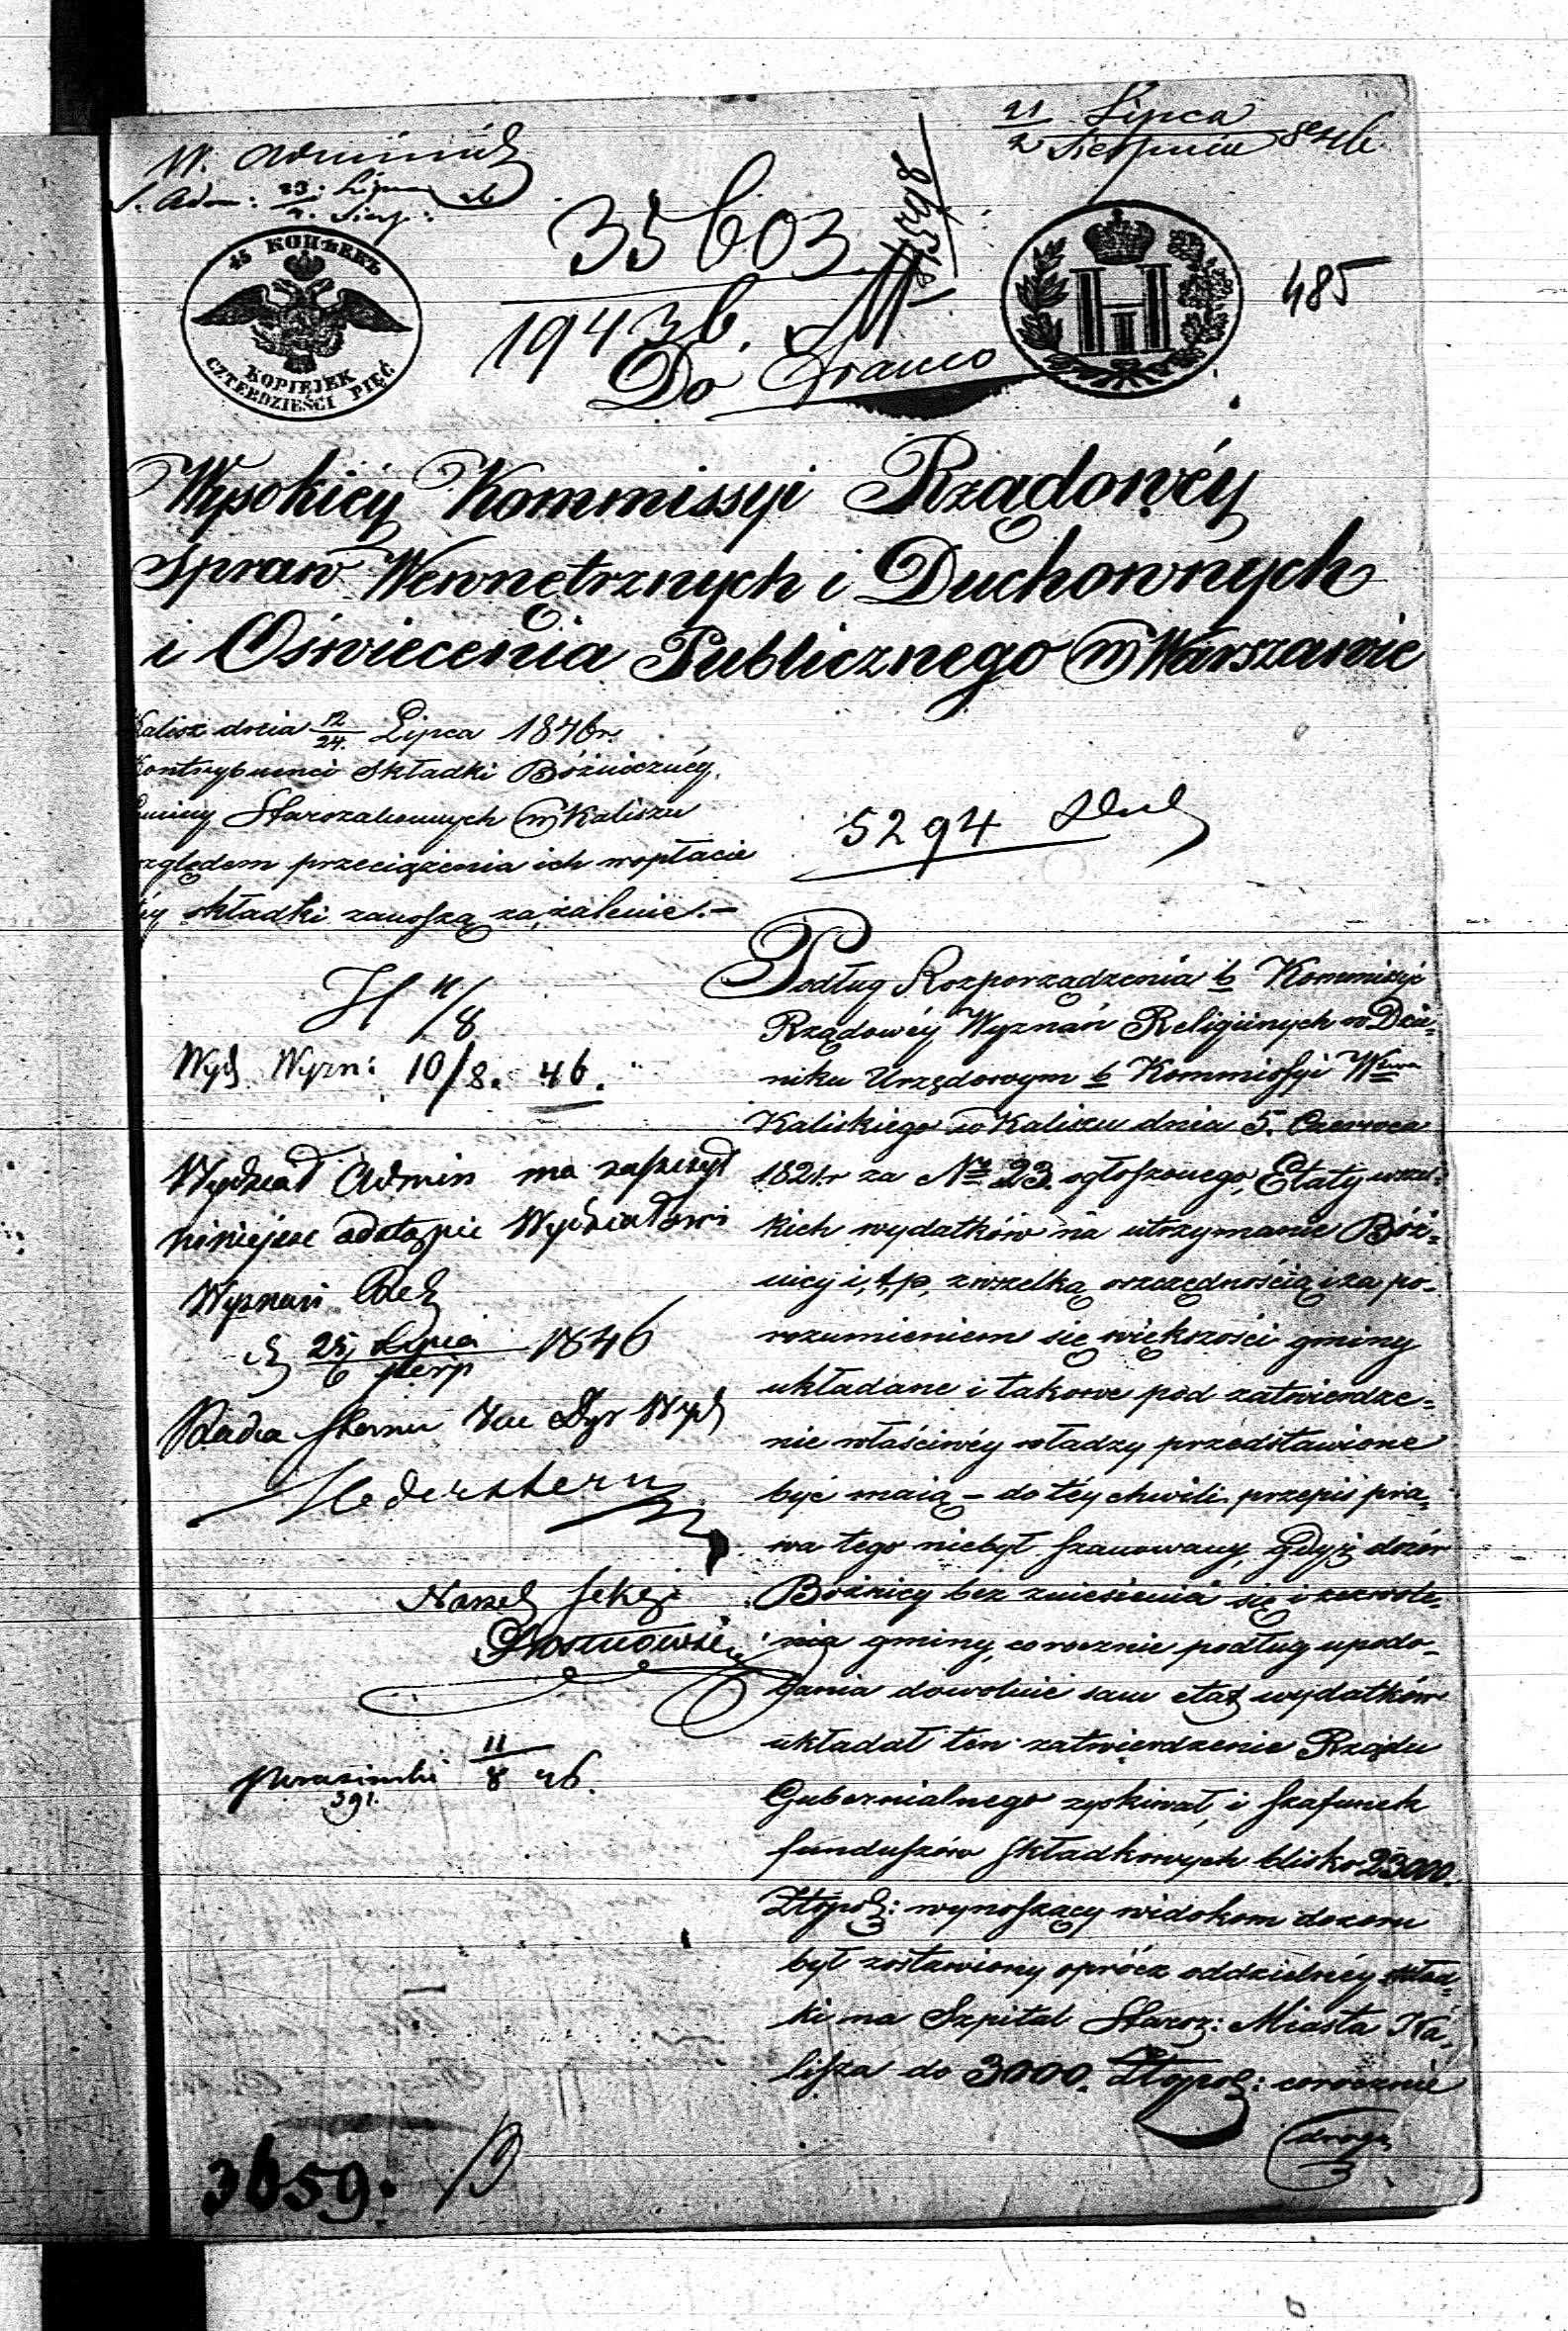 21 Lipca
2 Sierpnia 846.
W. Administ
S. Adm: 23. Lipca 46
4. Sierp:
35603
19436.
485
45 КОПѢЕКЪ
KOPIEJEK
CZTERDZIEŚCI PIĘĆ
Do Franco
Wysokiéy Kommissyi Rządowéy
Spraw Wewnętrznych i Duchownych
i Oświecenia Publicznego w Warszawie
Kalisz dnia 12/24. Lipca 1846 r.
Kontrybuenci Składki Bóżnicznéy
Gminy Starozakonnych w Kaliszu
względem przeciążenia ich w opłacie
téy składki zanoszą zażalenie.—
5294
H 11/8
Wyd. Wyzn: 10/8. 46.
Wydział Admin ma zaszczyt
niniejsze odstąpić Wydziałowi
Wyznań
d 25 Lipca 1846
6 sierp
Radca Stanu Vice Dyr Wydz
Hederstern
Naczel Sekcji
11/8 46.
391.
Podług Rozporządzenia b Kommissyi
Rządowéy Wyznań Religiinych w Dzie=
niku Urzędowym b Kommissyi Wwa
Kaliskiego w Kaliszu dnia 5. Czerwca
1821 r za Nr 23. ogłoszonego, Etaty wszel=
kich wydatków na utrzymanie Bóż=
nicy i, t, p, z wszelką oszczędnością i za po=
rozumieniem się większości gminy
układane i takowe pod zatwierdze=
nie właściwéy władzy przedstawione
być maią – do téy chwili przepis pra=
wa tego niebył szanowany, Gdyż dozór
Bożnicy bez zniesienia się i zezwole=
nia gminy, corocznie podług upodo=
bania dowolnie sam etat wydatków
układał ten zatwierdzenie Rządu
Gubernialnego zyskiwał, i szafunek
funduszów składkowych blisko 23000.
Złtpol: wynoszący widokom dozoru
był zostawiony oprócz oddzielnéy skład=
ki na Szpital Staroz: Miasta Ka=
lisza do 3000. Złtpol: corocznie
drogą
3659.